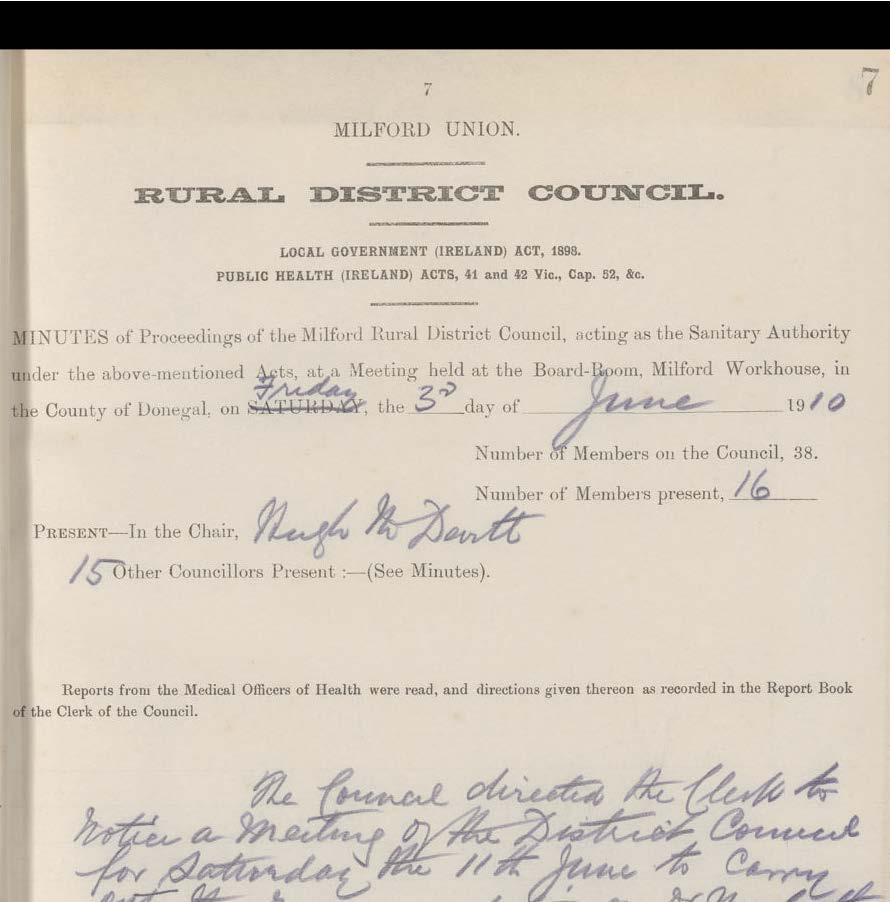 7
7
MILFORD UNION.
RURAL DISTRICT COUNCIL.
LOCAL GOVERNMENT (IRELAND) ACT, 1898.
PUBLIC HEALTH (IRELAND) ACTS, 41 and 42 Vic., Cap. 52, &c.
MINUTES of Proceedings of the Milford Rural District Council, acting as the Sanitary Authority
under the above-mentioned Acts, at a Meeting held at the Board-Room, Milford Workhouse, in
Friday
the County of Donegal, on SATURDAY, the 3rd day of June 1910
Number of Members on the Council, 38.
Number of Members present, 16
PRESENT—In the Chair, Hugh McDevitt
15 Other Councillors Present :—(See Minutes).
Reports from the Medical Officers of Health were read, and directions given thereon as recorded in the Report Book
of the Clerk of the Council.
The Council directed the Clerk to
notice a Meeting of the District Council
for Saturday the 11th June to Carry
out the